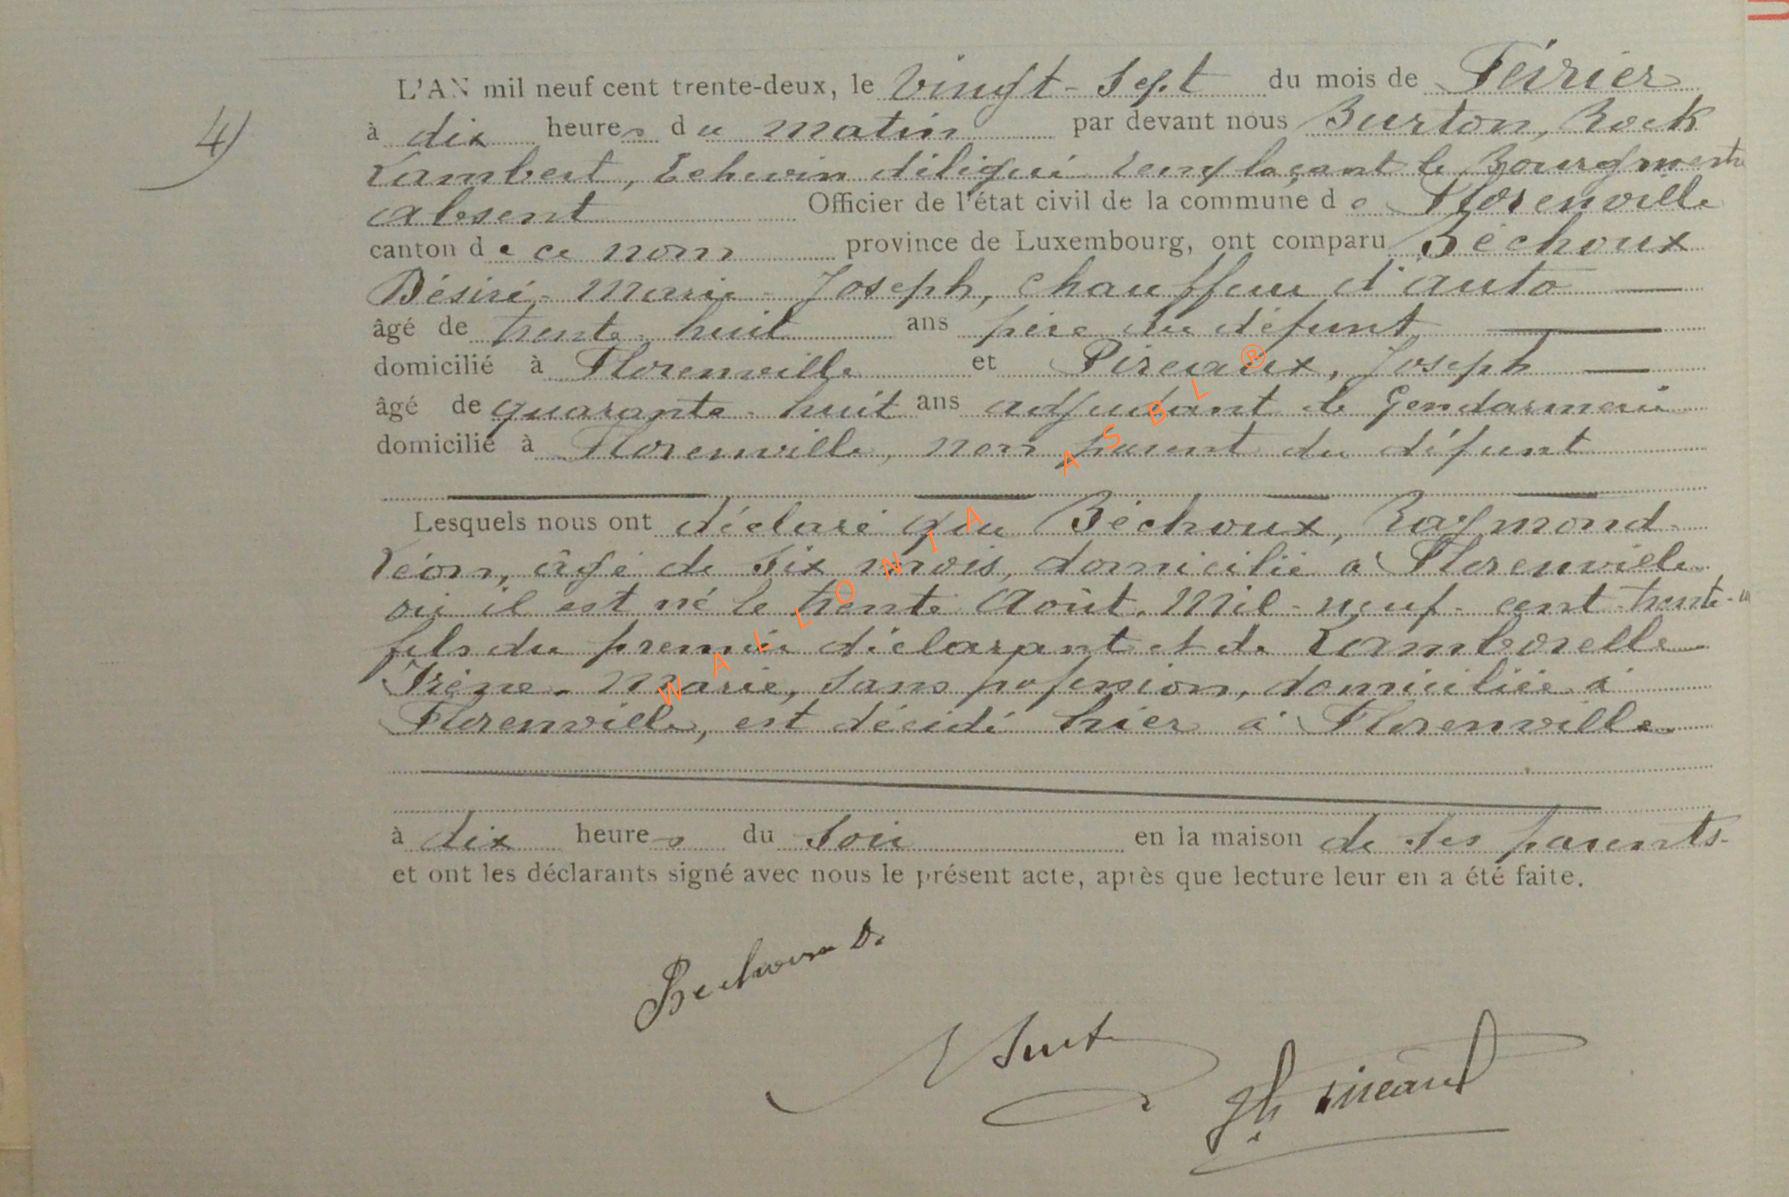 L'AN mil neuf cent trente-deux, le Vingt-Sept du mois de Février
4)
à dix heures du matin par devant nous Burton, Rock
Lambert, Echevin délégué remplaçant le Bourgmestre
absent Officier de l'état civil de la commune de Florenville
canton de ce nom province de Luxembourg, ont comparu Béchoux
Désiré-Marie-Joseph, chauffeur d'auto
âgé de trente-huit ans père du défunt
domicilié à Florenville et Pireaux, Joseph
âgé de quarante-huit ans adjudant de Gendarmerie
domicilié à Florenville, non parent du défunt
Lesquels nous ont déclaré que Béchoux, Raymond-
Léon, âgé de six mois, domicilié à Florenville
où il est né le trente Août, Mil-neuf-cent-trente-un
fils du premier déclarant et de Lamborelle
Irène-Marie, sans profession, domiciliée à
Florenville, est décédé hier à Florenville
à dix heures du soir en la maison de ses parents-
et ont les déclarants signé avec nous le présent acte, après que lecture leur en a été faite.
Bechoux D.
Jh Pireaux
WALLONIA ASBL ®